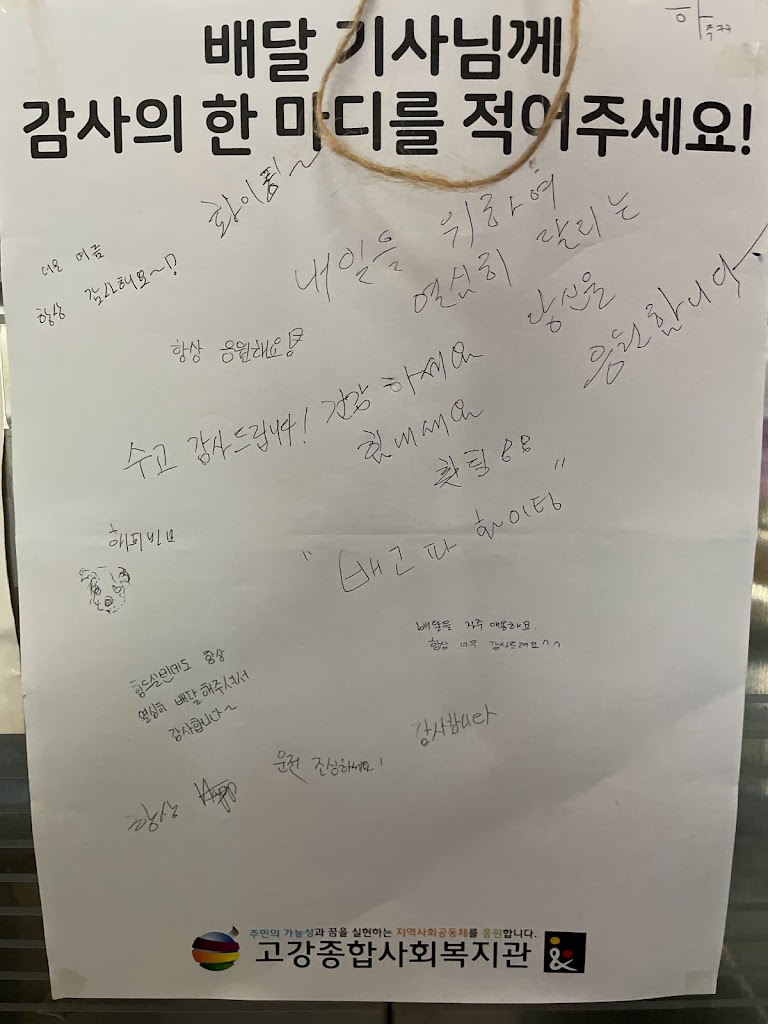 배달 기사님께
감사의 한 마디를 적어주세요!
화이팅~
더운 여름
항상 감사해요~!?
내일을 위하여
열심히 달리는
당신을
응원합니다
항상 응원해요!
수고 감사드립니다! 건강 하세요
힘내세요
홧팅
해피빈
"배고파 화이팅"
배달을 자주 애용해요.
항상 너무 감사드려요^^
힘드실텐데도 항상
열심히 배달해주셔서
감사합니다~
감사합니다
항상 운전 조심하세요!
주민의 가능성과 꿈을 실현하는 지역사회공동체를 응원합니다.
고강종합사회복지관